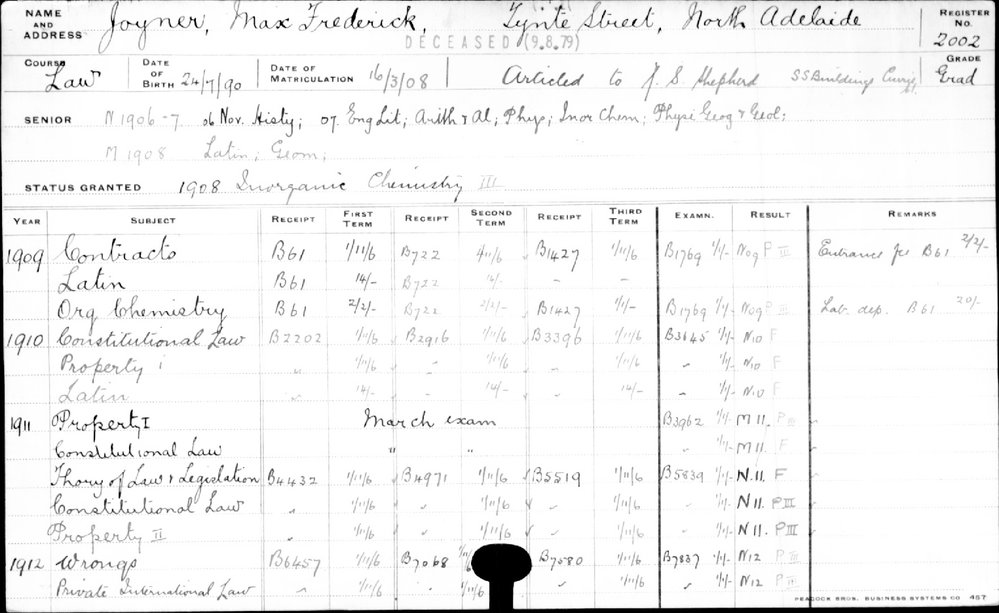 NAME AND ADDRESS Joyner, Max Frederick, Tynte Street, North Adelaide REGISTER No. 2002
DECEASED (9.8.79)
COURSE Law DATE OF BIRTH 24/7/90 DATE OF MATRICULATION 16/3/08 Articled to A. S. Shepherd SS Buildings Currie St. GRADE Grad
SENIOR N 1906-7 06 Nov. Histy; 07. Eng Lit; Arith & Al; Phys; Inor Chem; Physl Geog & Geol;
M 1908 Latin; Geom;
STATUS GRANTED 1908 Inorganic Chemistry III
YEAR SUBJECT RECEIPT FIRST TERM RECEIPT SECOND TERM RECEIPT THIRD TERM EXAMN. RESULT REMARKS
1909 Contracts B61 1/11/6 B722 1/11/6 B1427 1/11/6 B1769 1/1/- N09 P III Entrance fee B61 2/2/-
Latin B61 14/- B722 14/- - -
Org Chemistry B61 2/2/- B722 2/2/- B1427 1/1/- B1769 1/1/- N09 P III Lab. dep. B61 20/-
1910 Constitutional Law B2202 1/11/6 B2916 1/11/6 B3396 1/11/6 B3645 1/1/- N10 F
Property i " 1/11/6 " 1/11/6 " 1/11/6 " 1/1/- N10 F
Latin 14/- 14/- 14/- " 1/1/- N10 F
1911 Property I March exam B3962 1/1/- M 11. P III
Constitutional Law " " 1/1/- M 11. F
Thory of Law & Legislation B4432 1/11/6 B4971 1/11/6 B5519 1/11/6 B5839 1/1/- N.11. F
Constitutional Law " 1/11/6 " 1/11/6 " 1/11/6 " 1/1/- N11. P III
Property II " 1/11/6 " 1/11/6 " 1/11/6 " 1/1/- N11. P III
1912 Wrongs B6457 1/11/6 B7068 1/11/6 B7580 1/11/6 B7837 1/1/- N12 P III
Private International Law " 1/11/6 1/11/6 1/11/6 " 1/1/- N12 P II
PEACOCK BROS. BUSINESS SYSTEMS CO 457